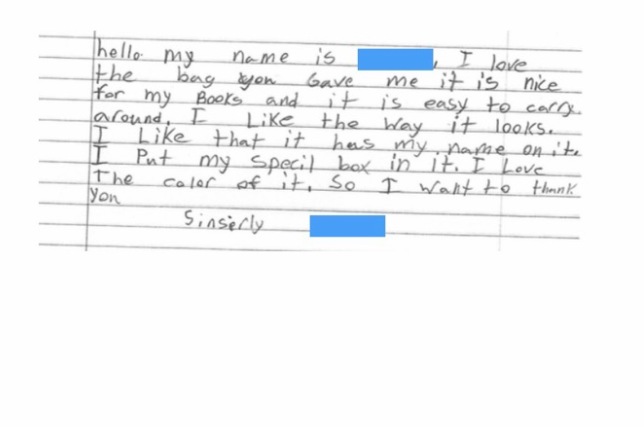 hello my name is , I love
the bag you Gave me it is nice
for my Books and it is easy to carry
around. I Like the way it looks.
I Like that it has my name on it.
I Put my specil box in it. I Love
The color of it. So I want to thank
you
Sinserly